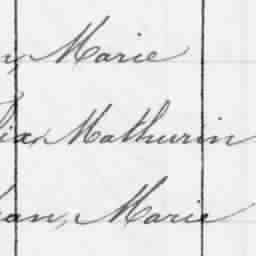 n, Marie
lia, Mathurin
ean, Marie